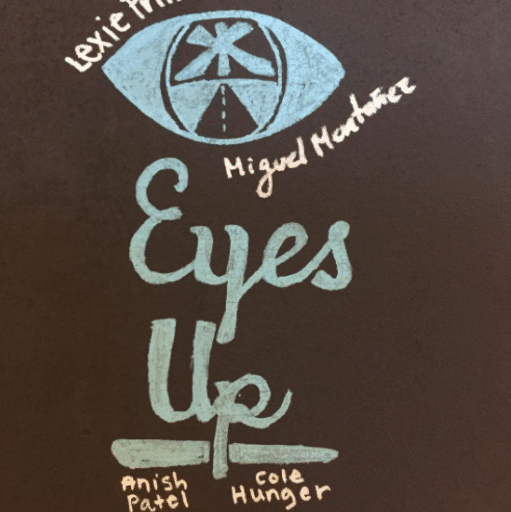 Lexie
Miguel Montañez
Eyes
Up
Anish
Patel
Cole
Hunger